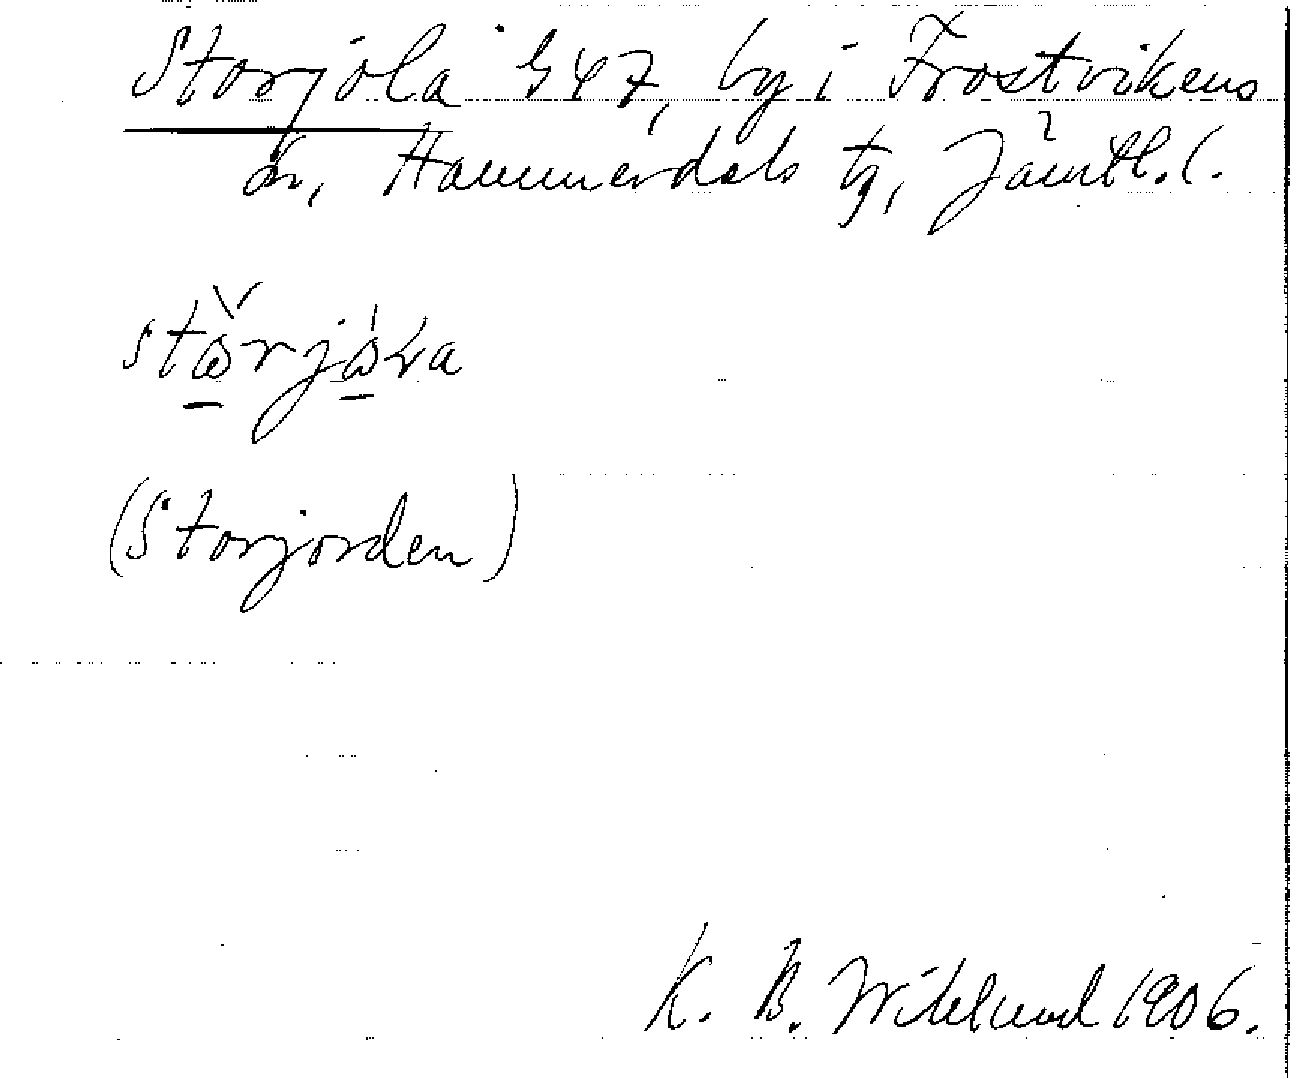 Storjola 547, by i Frostvikens
sn, Hammerdals tg, Jämtl. l.
(Storjorden)
K. B. Wiklund 1906.